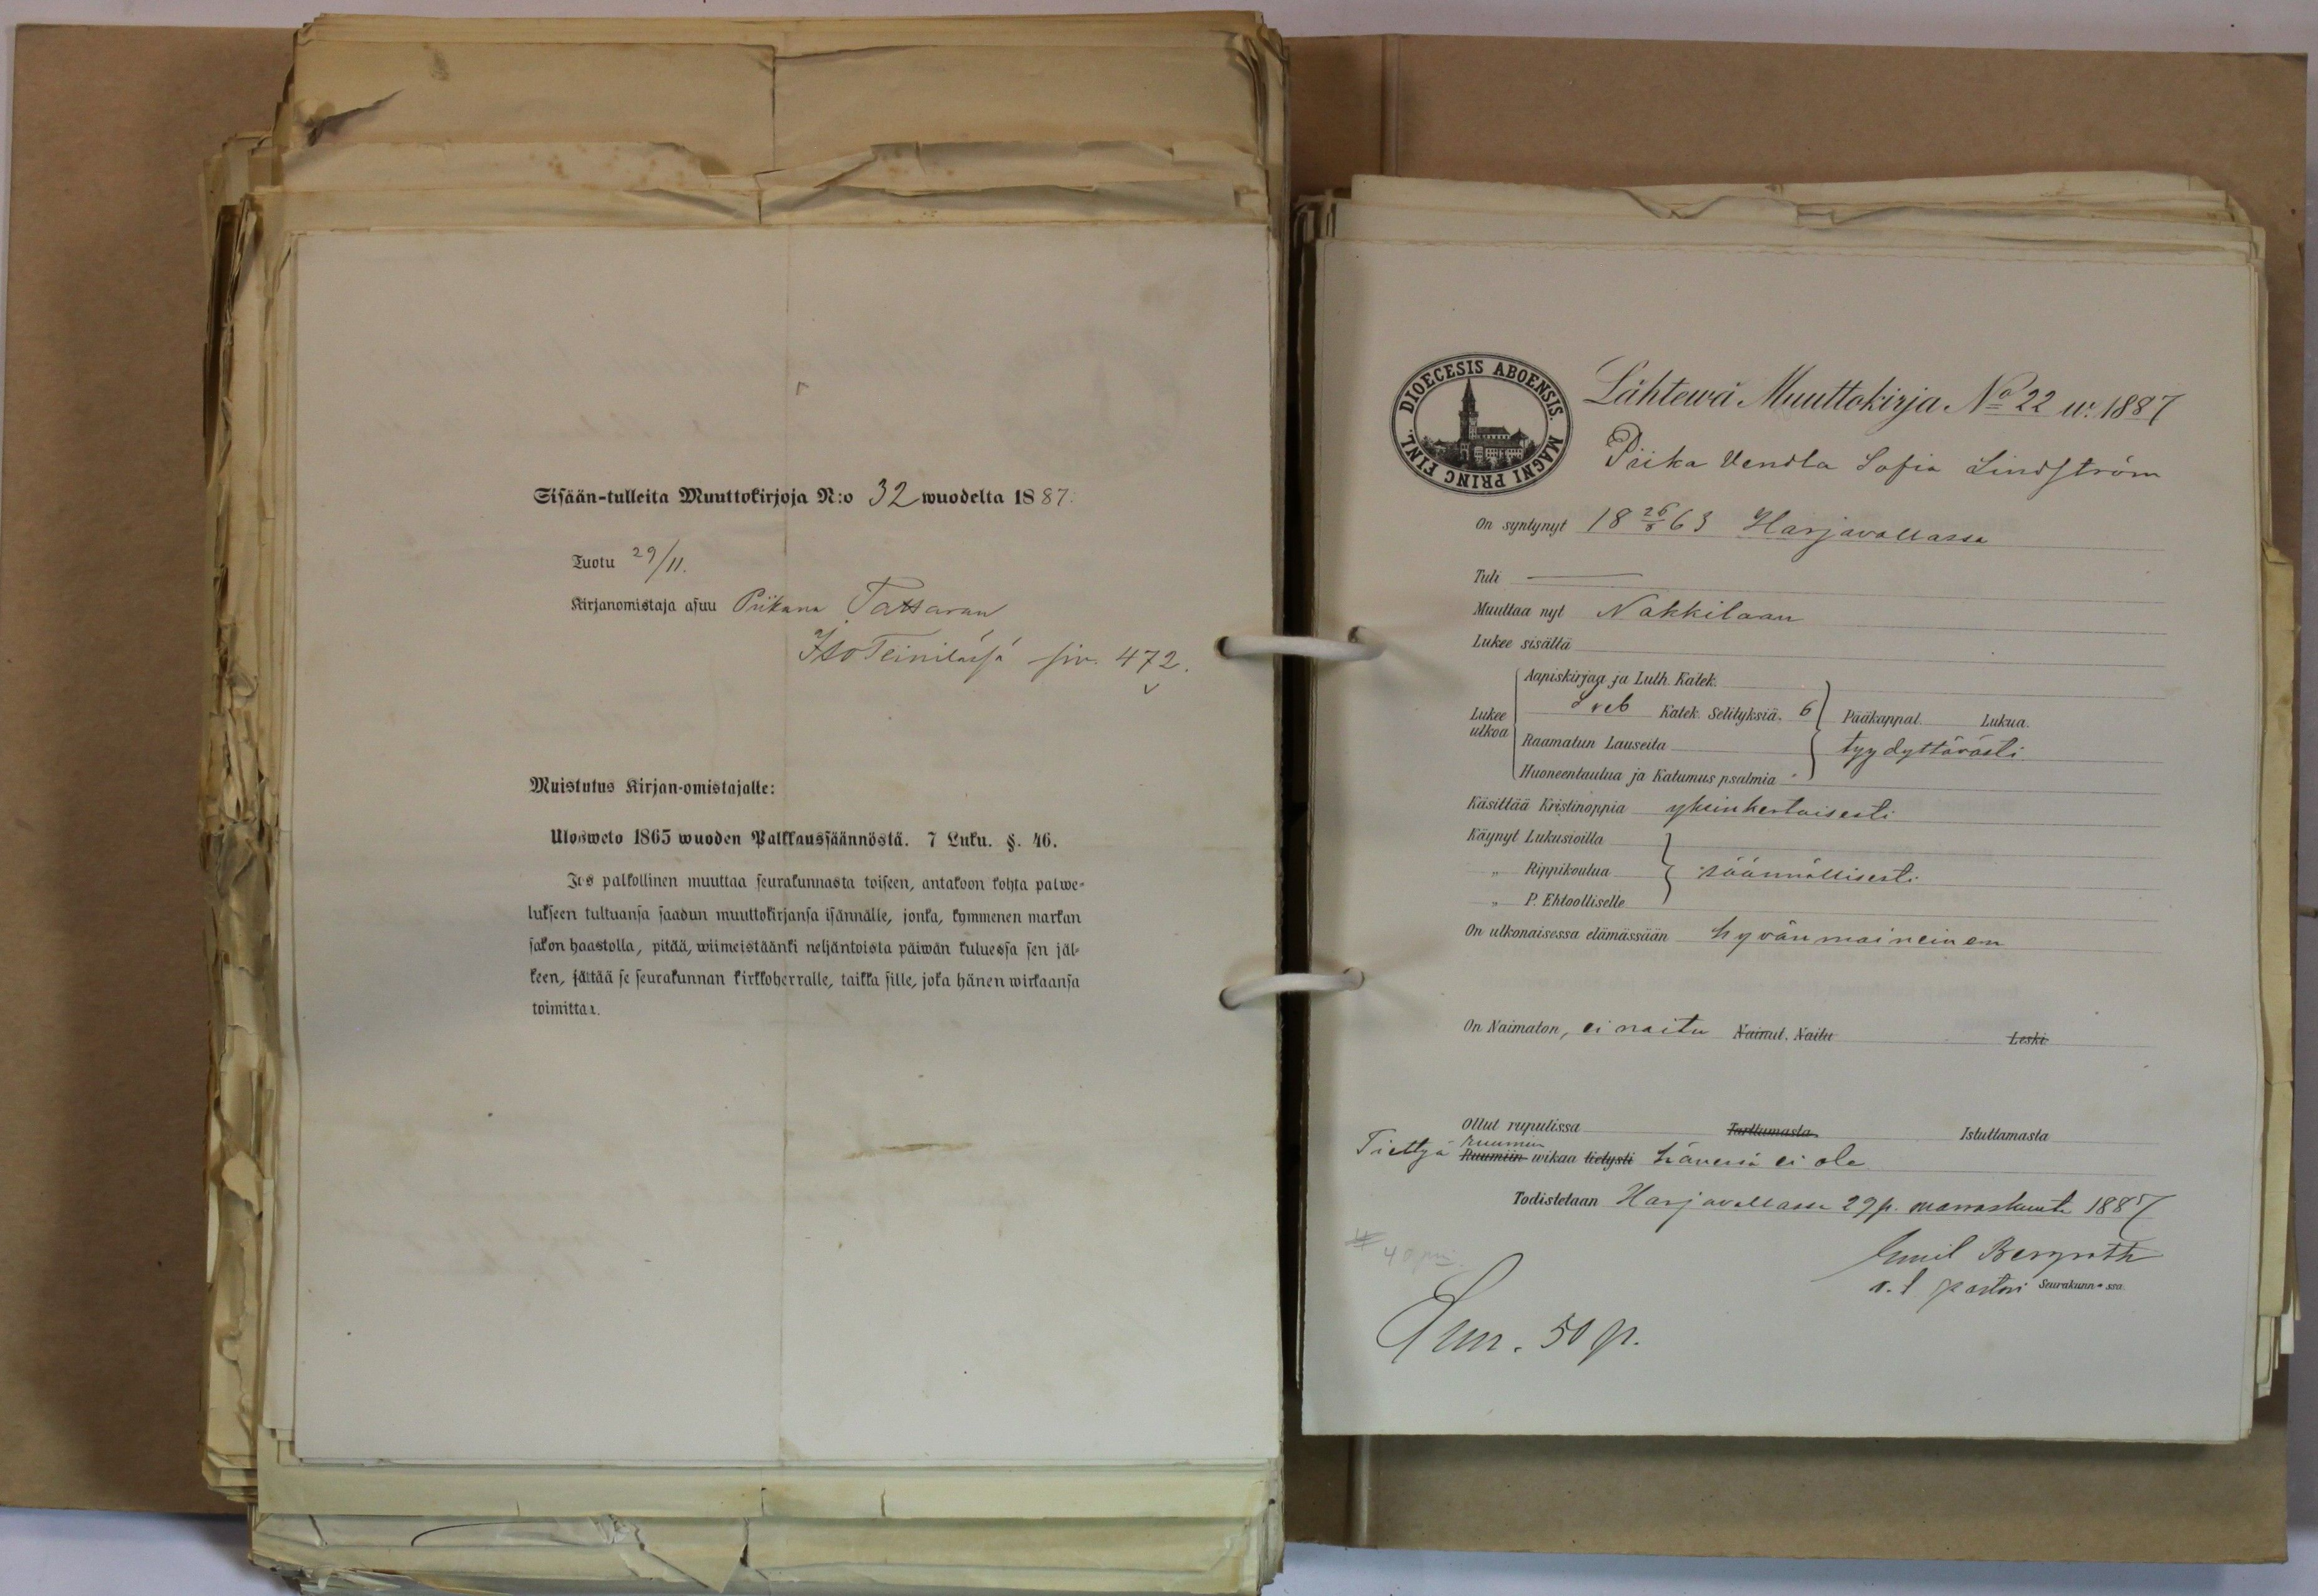 Sisään-tulleita Muuttokirjoja N:o 32 wuodelta 1887.
Tuotu 29/11.
Kirjanomistaja asuu Piikana Tattaran
Iso Teinilässä siv. 472.
Muistutus Kirjan-omistajalle:
Ulosweto 1865 wuoden Palkkaussäännöstä. 7 Luku. §. 46.
Jos palkollinen muuttaa seurakunnasta toiseen, antakoon kohta palwe-
lukseen tultuansa saadun muuttokirjansa isännälle, jonka, kymmenen markan
sakon haastolla, pitää, wiimeistäänki neljäntoista päiwän kuluessa sen jäl-
keen, jättää se seurakunnan kirkkoherralle, taikka sille, joka hänen wirkaansa
toimittaa.
DIOECESIS ABOENSIS. MAGNI PRINC FINL.
Lähtewä Muuttokirja No 22 w. 1887
Piika Vendla Sofia Lindström
On syntynyt 18 26/8 63 Harjavallassa
Tuli
Muuttaa nyt Nakkilaan
Lukee sisältä
Lukee ulkoa
Aapiskirjaa ja Luth. Katek.
Sveb Katek. Selityksiä. 6 Pääkappal. Lukua.
Raamatun Lauseita tyydyttävästi
Huoneentaulua ja Katumus psalmia
Käsittää Kristinoppia yksinkertaisesti
Käynyt Lukusioilla
„ Rippikoulua säännöllisesti
„ P. Ehtoolliselle
On ulkonaisessa elämässään hyvänmaineinen
On Naimaton, ei naitu Nainut. Naitu Leski
Ollut rupulissa Tarttumasta Istuttamasta
Tiettyä ruumiin Ruumiin wikaa tietysti hänessä ei ole
Todistetaan Harjavallassa 29 p. marraskuuta 1887
Emil Bergroth
v. t. pastori Seurakunnassa
# 40 pni
Lun. 50 p.